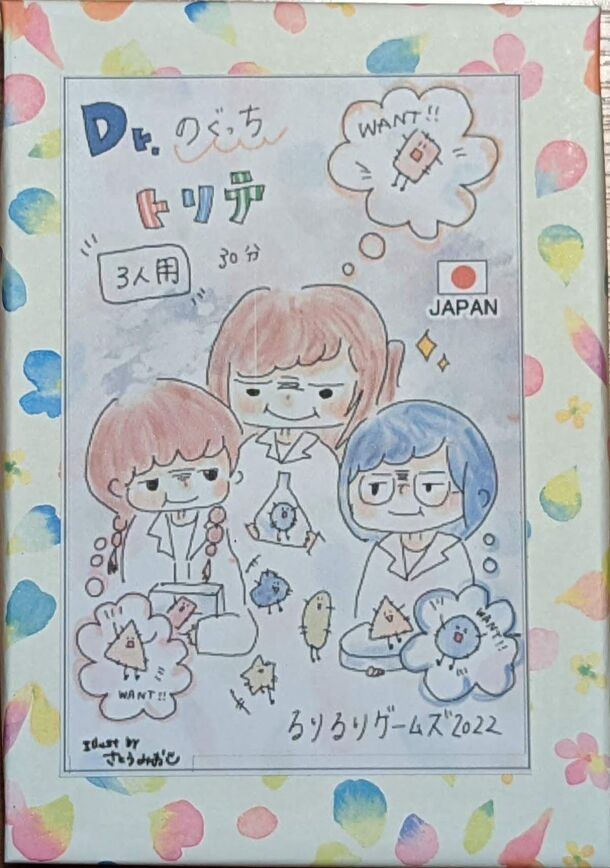 Dr.のぐっち
トリテ
3人用
30分
WANT!!
JAPAN
WANT!!
WANT!!
るりるりゲームズ2022
Illust by
さとうみおこ